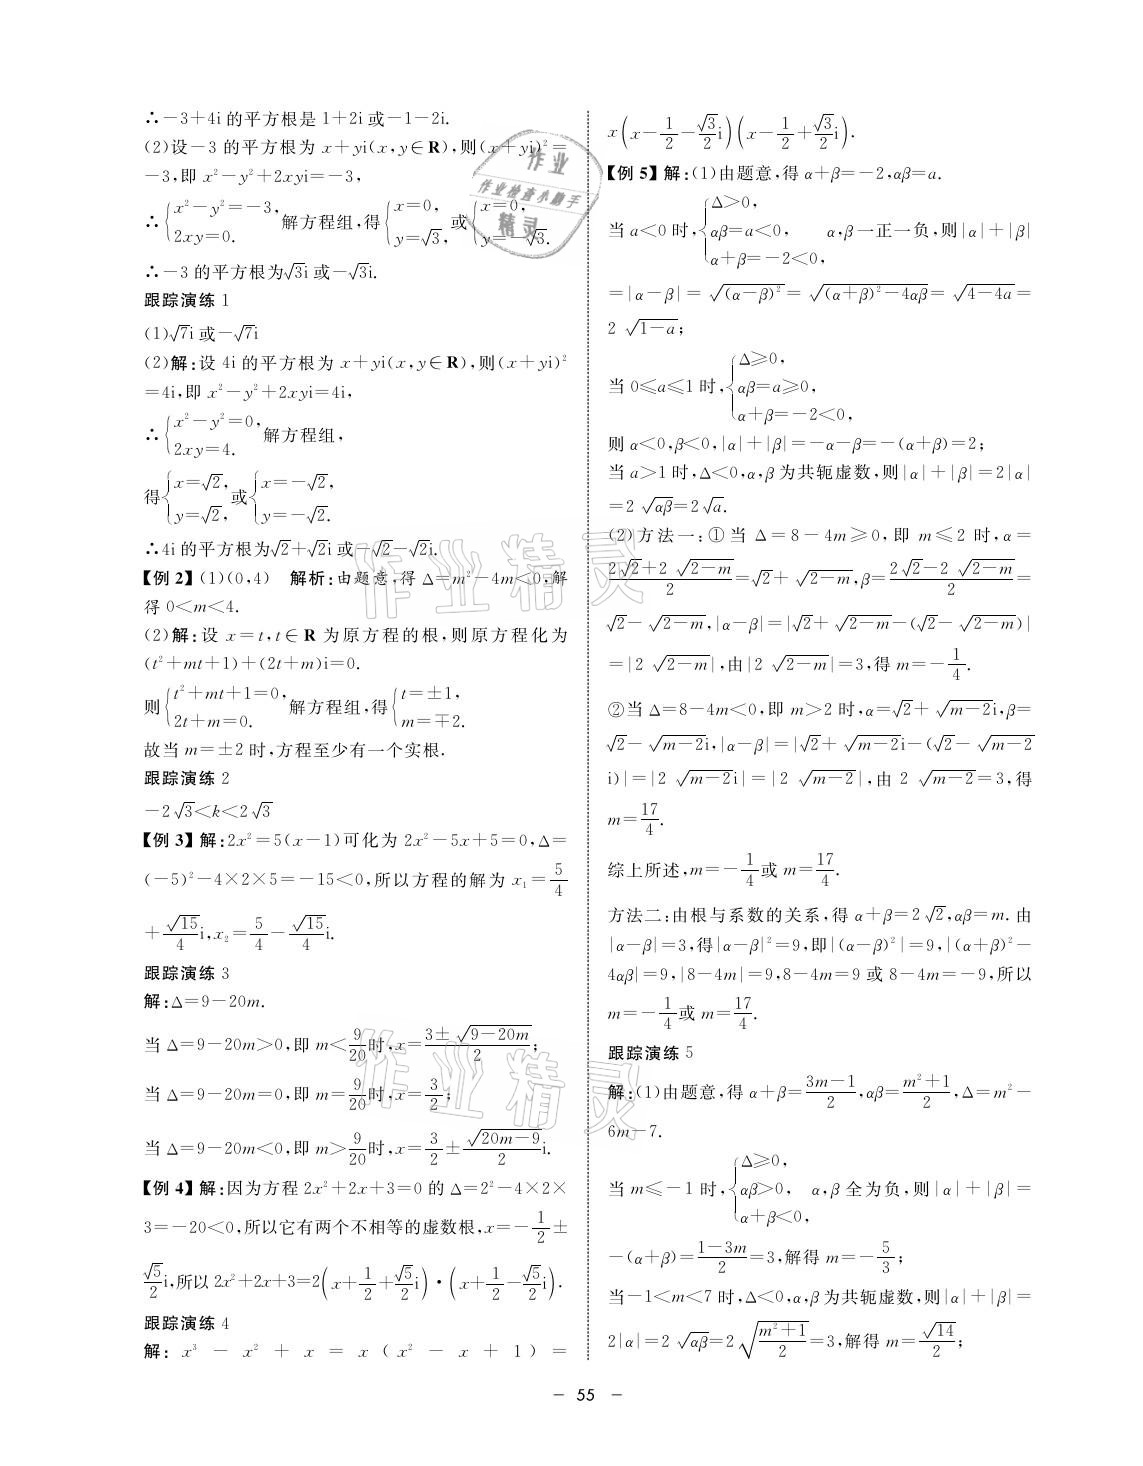 ∴−3+4i的平方根是1+2i或−1−2i.
(2)设−3的平方根为x+yi(x,y∈R),则(x+yi)²=
−3,即x²−y²+2xyi=−3,
∴{x²−y²=−3, 2xy=0. 解方程组,得{x=0, y=√3, 或{x=0, y=−√3.
∴−3的平方根为√3i或−√3i.
跟踪演练1
(1)√7i或−√7i
(2)解:设4i的平方根为x+yi(x,y∈R),则(x+yi)²
=4i,即x²−y²+2xyi=4i,
∴{x²−y²=0, 2xy=4. 解方程组,
得{x=√2, y=√2, 或{x=−√2, y=−√2.
∴4i的平方根为√2+√2i或−√2−√2i.
【例2】(1)(0,4) 解析:由题意,得Δ=m²−4m<0,解
得0<m<4.
(2)解:设x=t,t∈R为原方程的根,则原方程化为
(t²+mt+1)+(2t+m)i=0.
则{t²+mt+1=0, 2t+m=0. 解方程组,得{t=±1, m=∓2.
故当m=±2时,方程至少有一个实根.
跟踪演练2
−2√3<k<2√3
【例3】解:2x²=5(x−1)可化为2x²−5x+5=0,Δ=
(−5)²−4×2×5=−15<0,所以方程的解为x₁=5/4
+√15/4 i,x₂=5/4−√15/4 i.
跟踪演练3
解:Δ=9−20m.
当Δ=9−20m>0,即m<9/20时,x=(3±√(9−20m))/2;
当Δ=9−20m=0,即m=9/20时,x=3/2;
当Δ=9−20m<0,即m>9/20时,x=3/2±√(20m−9)/2 i.
【例4】解:因为方程2x²+2x+3=0的Δ=2²−4×2×
3=−20<0,所以它有两个不相等的虚数根,x=−1/2±
√5/2 i,所以2x²+2x+3=2(x+1/2+√5/2 i)·(x+1/2−√5/2 i).
跟踪演练4
解:x³−x²+x=x(x²−x+1)=
x(x−1/2−√3/2 i)(x−1/2+√3/2 i).
【例5】解:(1)由题意,得α+β=−2,αβ=a.
当a<0时,{Δ>0, αβ=a<0, α+β=−2<0, α,β一正一负,则|α|+|β|
=|α−β|=√(α−β)²=√((α+β)²−4αβ)=√(4−4a)=
2√(1−a);
当0≤a≤1时,{Δ≥0, αβ=a≥0, α+β=−2<0,
则α<0,β<0,|α|+|β|=−α−β=−(α+β)=2;
当a>1时,Δ<0,α,β为共轭虚数,则|α|+|β|=2|α|
=2√αβ=2√a.
(2)方法一:①当Δ=8−4m≥0,即m≤2时,α=
(2√2+2√(2−m))/2=√2+√(2−m),β=(2√2−2√(2−m))/2=
√2−√(2−m),|α−β|=|√2+√(2−m)−(√2−√(2−m))|
=|2√(2−m)|,由|2√(2−m)|=3,得m=−1/4.
②当Δ=8−4m<0,即m>2时,α=√2+√(m−2)i,β=
√2−√(m−2)i,|α−β|=|√2+√(m−2)i−(√2−√(m−2)
i)|=|2√(m−2)i|=|2√(m−2)|,由2√(m−2)=3,得
m=17/4.
综上所述,m=−1/4或m=17/4.
方法二:由根与系数的关系,得α+β=2√2,αβ=m.由
|α−β|=3,得|α−β|²=9,即|(α−β)²|=9,|(α+β)²−
4αβ|=9,|8−4m|=9,8−4m=9或8−4m=−9,所以
m=−1/4或m=17/4.
跟踪演练5
解:(1)由题意,得α+β=(3m−1)/2,αβ=(m²+1)/2,Δ=m²−
6m−7.
当m≤−1时,{Δ≥0, αβ>0, α+β<0, α,β全为负,则|α|+|β|=
−(α+β)=(1−3m)/2=3,解得m=−5/3;
当−1<m<7时,Δ<0,α,β为共轭虚数,则|α|+|β|=
2|α|=2√αβ=2√((m²+1)/2)=3,解得m=√14/2;
− 55 −
作业
作业检查小助手
精灵
作业精灵
作业精灵